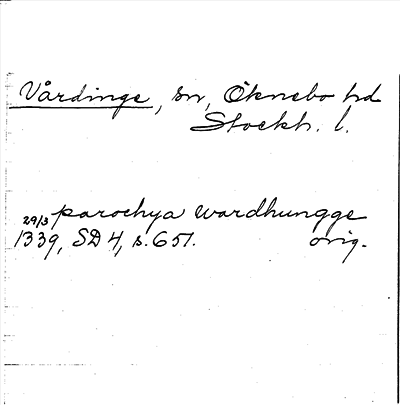 Vårdinge, sn, Öknebo hd
Stockh. l.
parochya wardhungge
29/3 1339, SD 4, s. 651. orig.